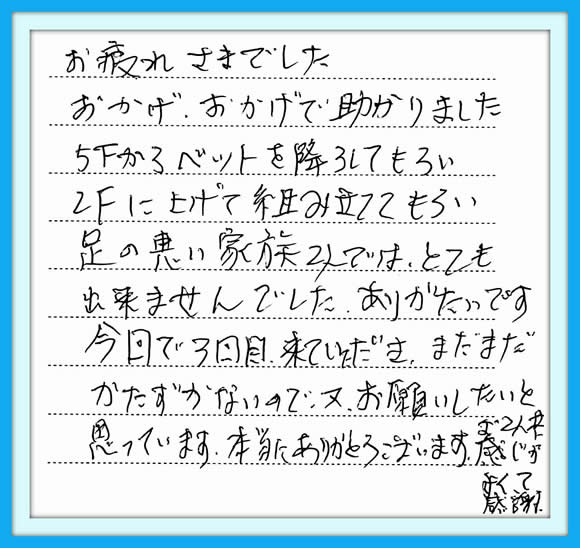 お疲れさまでした
おかげ、おかげで助かりました
5Fからベットを降ろしてもらい
2Fに上げて組み立ててもらい
足の悪い家族2人では、とても
出来ませんでした、ありがたいです
今回で3回目、来ていただき、まだまだ
かたずかないので、又、お願いしたいと
思っています、本当にありがとうございます、
お2人共
感じが
よくて
感謝、